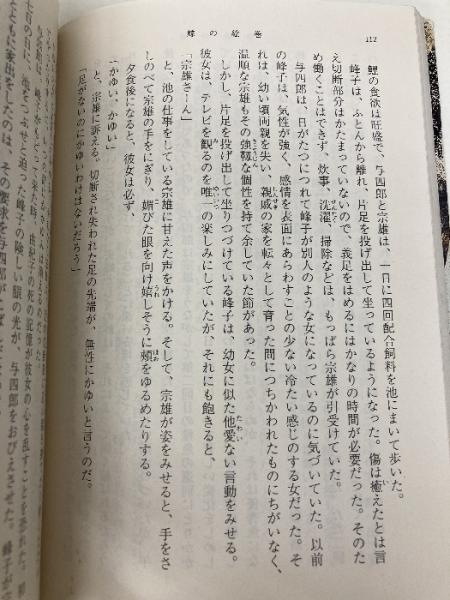 112
蝶の絵巻
鯉の食欲は旺盛で、与四郎と宗雄は、一日に四回配合飼料を池にまいて歩いた。
峰子は、ふとんから離れ、片足を投げ出して坐っているようになった。傷は癒えたとは言
え切断部分はかたまっていないので、義足をはめるにはかなりの時間が必要だった。そのた
め働くことはできず、炊事、洗濯、掃除などは、もっぱら宗雄が引受けていた。
与四郎は、日がたつにつれて峰子が別人のような女になっているのに気づいていた。以前
の峰子は、気性が強く、感情を表面にあらわすことの少ない冷たい感じのする女だった。そ
れは、幼い頃両親を失い、親戚の家を転々として育った間につちかわれたものにちがいなく、
温順な宗雄もその強靱な個性を持て余していた節があった。
しかし、片足を投げ出して坐りつづけている峰子は、幼女に似た他愛ない言動をみせる。
彼女は、テレビを観るのを唯一の楽しみにしていたが、それにも飽きると、
「宗雄さーん」
と、池の仕事をしている宗雄に甘えた声をかける。そして、宗雄が姿をみせると、手をさ
しのべて宗雄の手をにぎり、媚びた眼を向け嬉しそうに頰をゆるめたりする。
夕食後になると、彼女は必ず、
「かゆい、かゆい」
と、宗雄に訴える。切断され失われた足の先端が、無性にかゆいと言うのだ。
「足がないのにかゆいわけはないだろう」